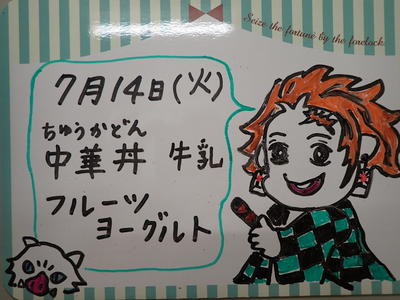 Seize the fortune by the forelock.
7月14日(火)
ちゅうかどん
中華丼 牛乳
フルーツ
ヨーグルト